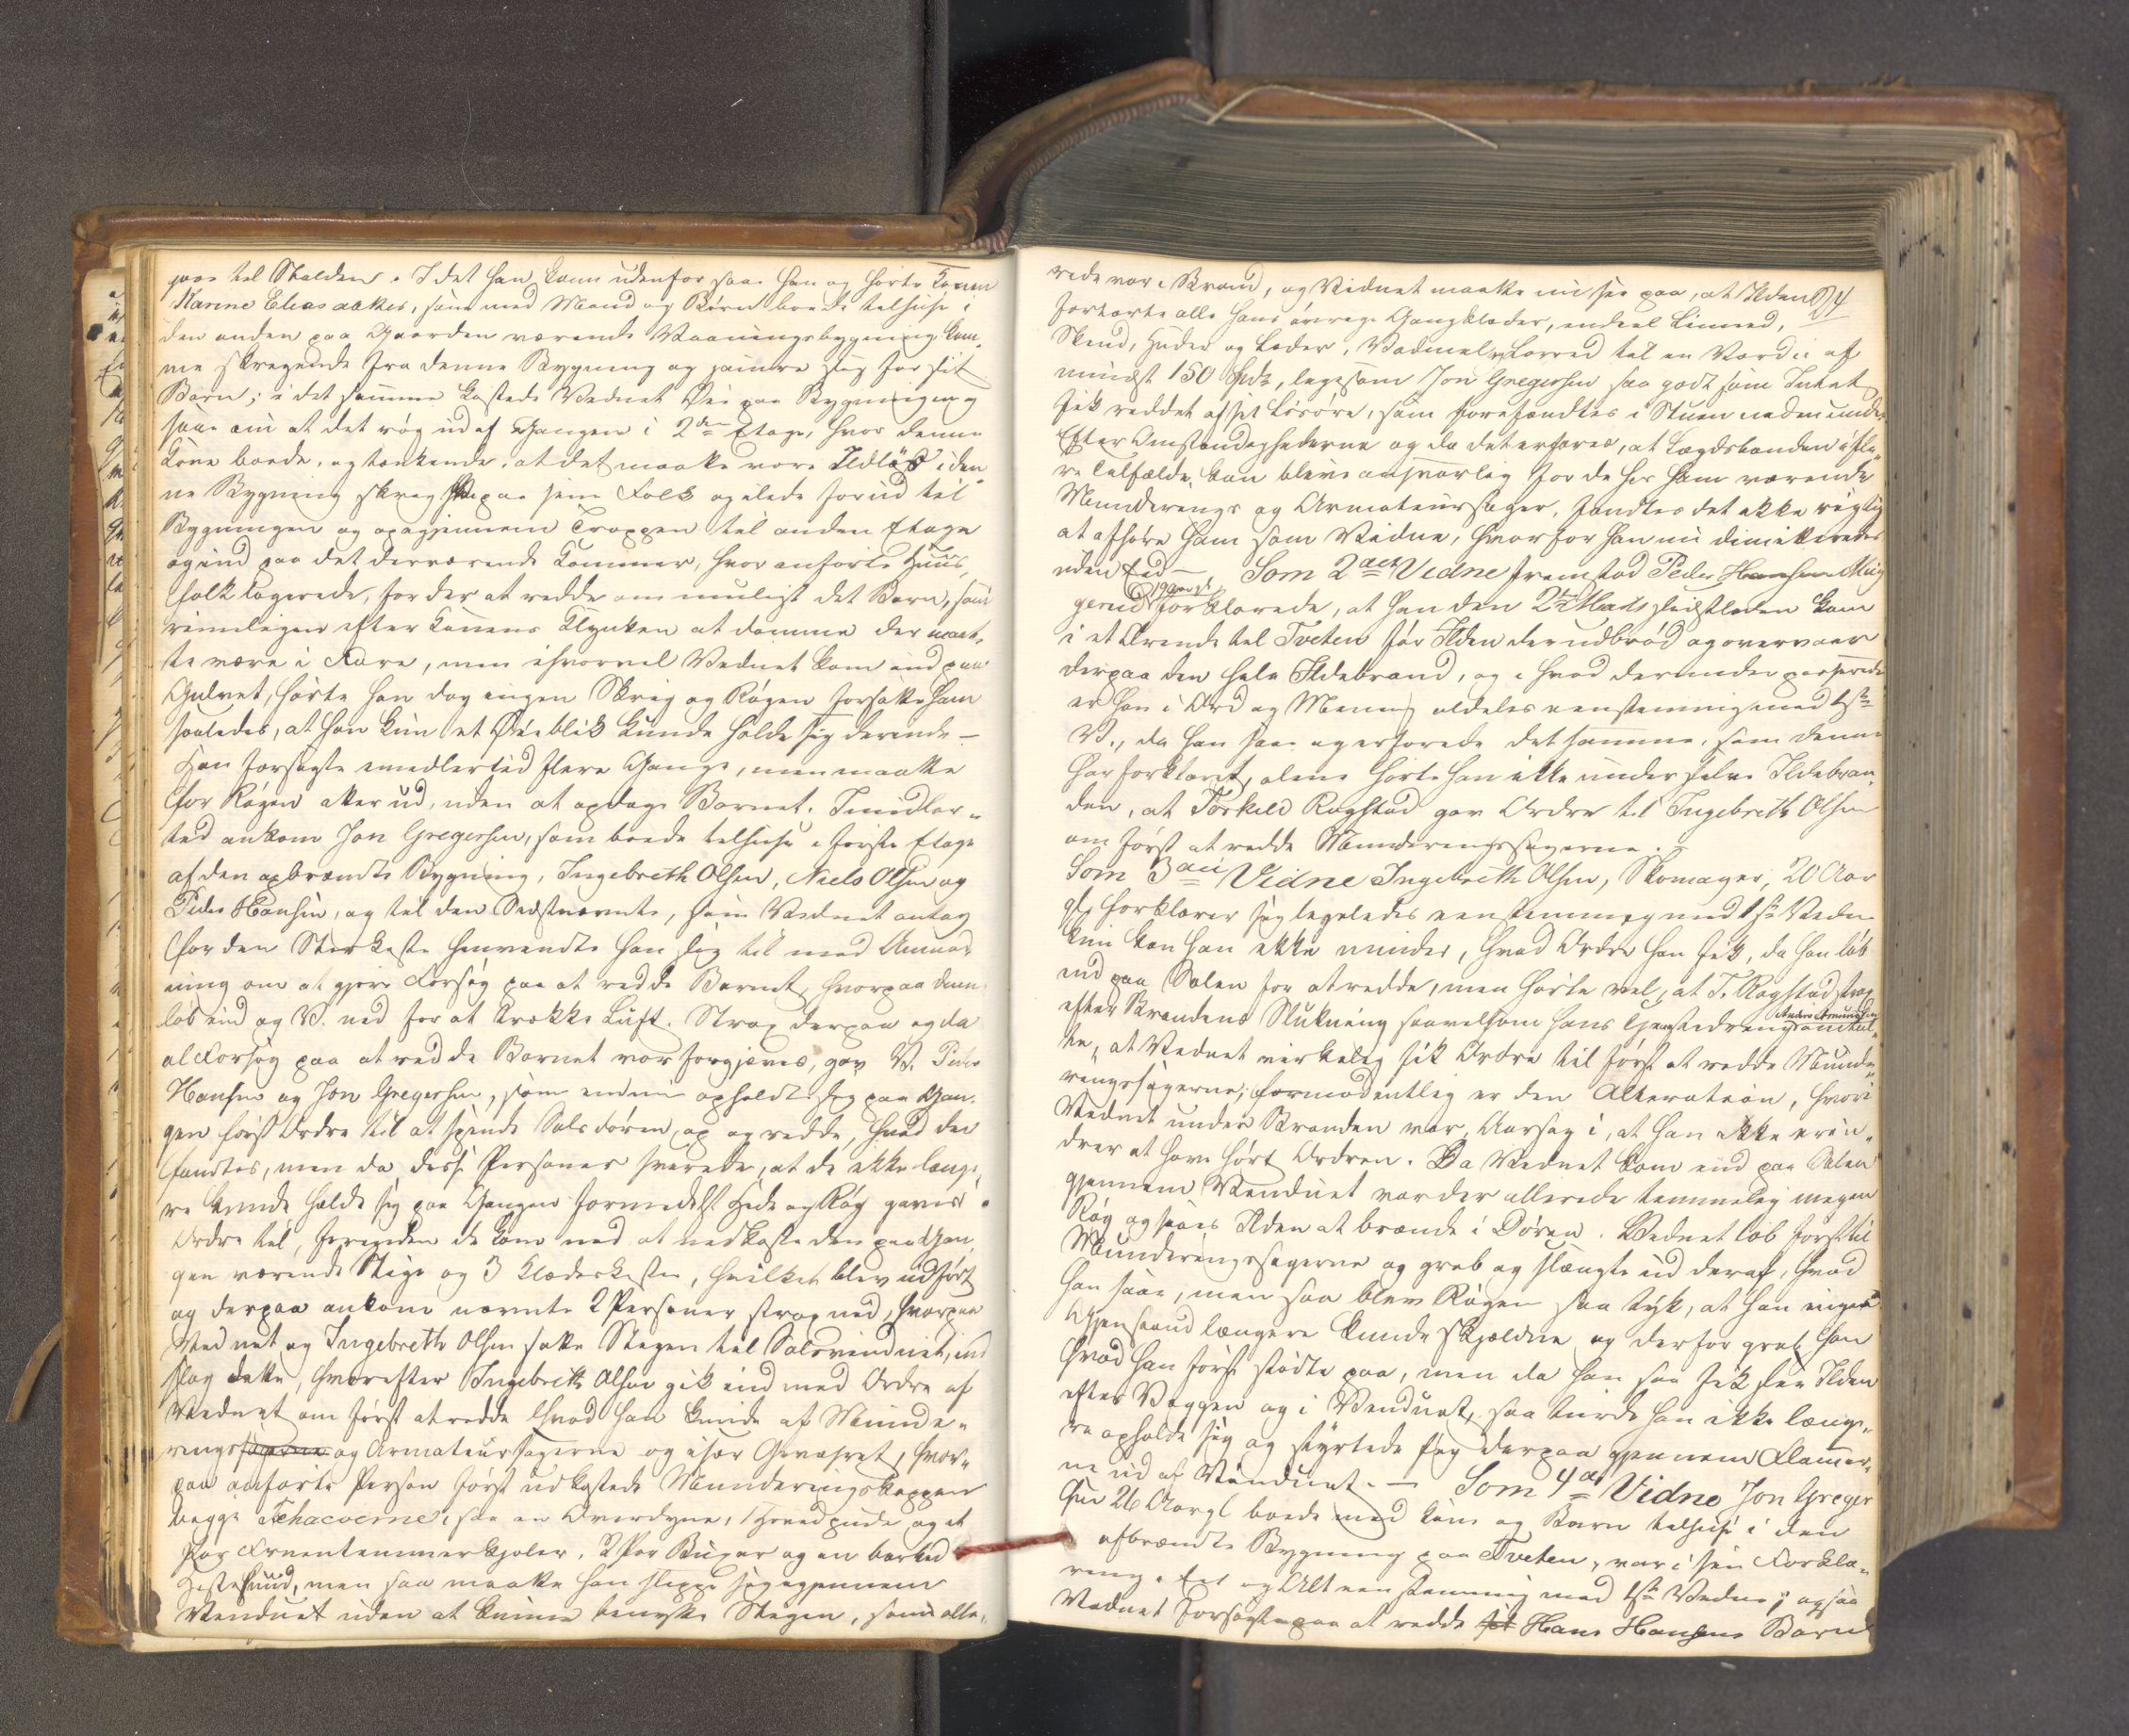 paa til Stalden. I det han kom udenfor saae han og hørte Konen
Karine Eliasdatter, som med Mand og Børn boede tilhuse i
den anden paa Gaarden værende Vaaningsbygning kom¬
me skregende fra denne Bygning og jamre sig for sit
Barn; i det samme kastede Vidnet Øie paa Bygningen og
saae nu at det røg ud af Gangen i 2den Etage, hvor denne
Kone boede, og tænkende, at det maatte være Ildløs i den¬
ne Bygning skreg paa sine Folk og ilede forud til
Bygningen og op gjennem Trappen til anden Etage
og ind paa det derværende Kammer, hvor anførte Huus¬
folk logerede, for der at redde om muligt det Barn, som
rimeligen efter Konens Klynken at dømme der maat¬
te være i Fare, men ihvorvel Vidnet kom ind paa
Gulvet, hørte han dog ingen Skrig og Røgen forsatte ham
saaledes, at han kun et Øieblik kunde holde sig derinde –
Han forsøgte imidlertid flere Gange, men maatte
for Røgen atter ud, uden at opdage Barnet. Imidler¬
tid ankom Jon Gregersen, som boede tilhuse i første Etage
af den opbrændte Bygning, Ingebreth Olsen, Niels Olsen og
Peder Hansen, og til den Sidstnævnte, som Vidnet antog
for den Sterkeste henvendte han sig til med Anmod¬
ning om at gjøre Forsøg paa at redde Barnet, hvorpaa denne
løb ind og V. ned for at trække Luft. Strax derpaa og da
al Forsøg paa at redde Barnet var forgjæves, gav V. Peder
Hansen og Jon Gregersen, som endnu opholdt sig paa Gan¬
gen først Ordre til at spænde Salsdøren op og redde, hvad der
fandtes, men da disse Personer svarede, at de ikke længe¬
re kunde holde sig paa Gangen formedelst Hede og Røg gaves
Ordre til, forinden de kom ned at nedkaste den paa Gan¬
gen værende Stige og 3 Klædeskister, hvilket blev udført
og derpaa ankom nævnte 2 Personer strax ned, hvorpaa
Vidnet og Ingebreth Olsen satte Stegen til Salsvinduet, ind
slog dette, hvorefter Ingebreth Olsen gik ind med Ordre af
Vidnet om først at redde hvad han kunde af Munde¬
rings og Armatursagerne og især Geværet, hvor¬
paa anførte Person først udkastede Munderingskappen
begge Tchacoerne, saa en Overdyne, 1 Hovedpude og et
Par Fruentimmerkjoler, 2 Par Buxer og en barket
Hestehuud, men saa maatte han slippe sig igjennem
Vinduet uden at kunne benytte Stegen, som alle¬
rede var i Brand, og Vidnet maatte nu see paa, at Ilden 24
fortærte alle hans øvrige Gangklæder, endeel Linned,
Skind, Huder og Læder, Vadmel og Lærred til en Værdie af
mindst 150 Spd, ligesom Jon Gregersen saa godt som Intet
fik reddet af sit Løsøre, som forefandtes i Stuen nedenunder
Efter Omstændighederne og da det erfares, at Lægdsbonden i fle¬
re Tilfælde kan blive ansvarlig for de hos ham værende
Munderings og Armatursager, fandtes det ikke rigtig
at afhøre ham som Vidne, hvorfor han nu dimitteredes
uden Eed – Som 2det Vidne fremstod Peder Hansen
gerud 19 Aar gl forklarede, at han den 2den Marts sidstleden kom
i et Ærende til Tveten før Ilden der udbrød og overvaar
derpaa den hele Ildebrand, og i hvad derunder passerede
er han i Ord og Mening aldeles eenstemmig med 1ste
V., da han saae og erfarede det samme, som denne
har forklaret, alene hørte han ikke under selve Ildebran¬
den, at Torkild Rogstad gav Ordre til Ingebreth Olsen
om først at redde Munderingssagerne. –
Som 3die Vidne Ingebreth Olsen, Skomager, 20 Aar
gl, forklarer sig ligeledes eenstemmig med 1ste Vidne
kun kan han ikke mindes, hvad Ordre han fik, da han løb
ind paa Salen for at redde, men hørte vel, at T. Rogstad strax
efter Brandens Slukning saavelsom hans Tjenestedreng Anders Amundsen omtal¬
te, at Vidnet virkelig fik Ordre til først at redde Munde¬
ringssagerne; formodentlig er den Alteration, hvori
Vidnet under Branden var, Aarsag i, at han ikke erin¬
drer at have hørt Ordren. Da Vidnet kom ind paa Salen
gjennem Vinduet var der allerede temmelig megen
Røg og saaes Ilden at brænde i Døren. Vidnet løb først til
Munderingssagerne og greb og slængte ud deraf, hvad
han saae, men saa blev Røgen saa tyk, at han ingen
Gjenstand længere kunde skjældne og derfor greb han
hvad han først stødte paa, men da han saa fik see Ilden
efter Væggen og i Vinduet, saa turde han ikke længe¬
re opholde sig og styrtede sig derpaa gjennem Flammer¬
ne ud af Vinduet. – Som 4de Vidne Jon Greger
sen 26 Aar gl boede med Kone og Barn tilhuse i den
afbrændte Bygning paa Tveten, var i sin Forkla¬
ring i Eet og Alt eenstemmig med 1ste Vidne; ogsaa
Vidnet forsøgte paa at redde Hans Hansens Barn